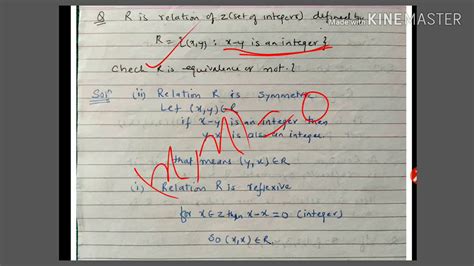 Made with KINEMASTER
Q R is relation of Z (set of integers) defined by
R = {(x,y) : x-y is an integer}
Check R is equivalence or not.?
Solⁿ (ii) Relation R is symmetric
Let (x,y)∈R
if x-y is an integer then
y-x is also an integer
that means (y,x)∈R
(i) Relation R is reflexive
for x∈Z then x-x=0 (integer)
So (x,x)∈R